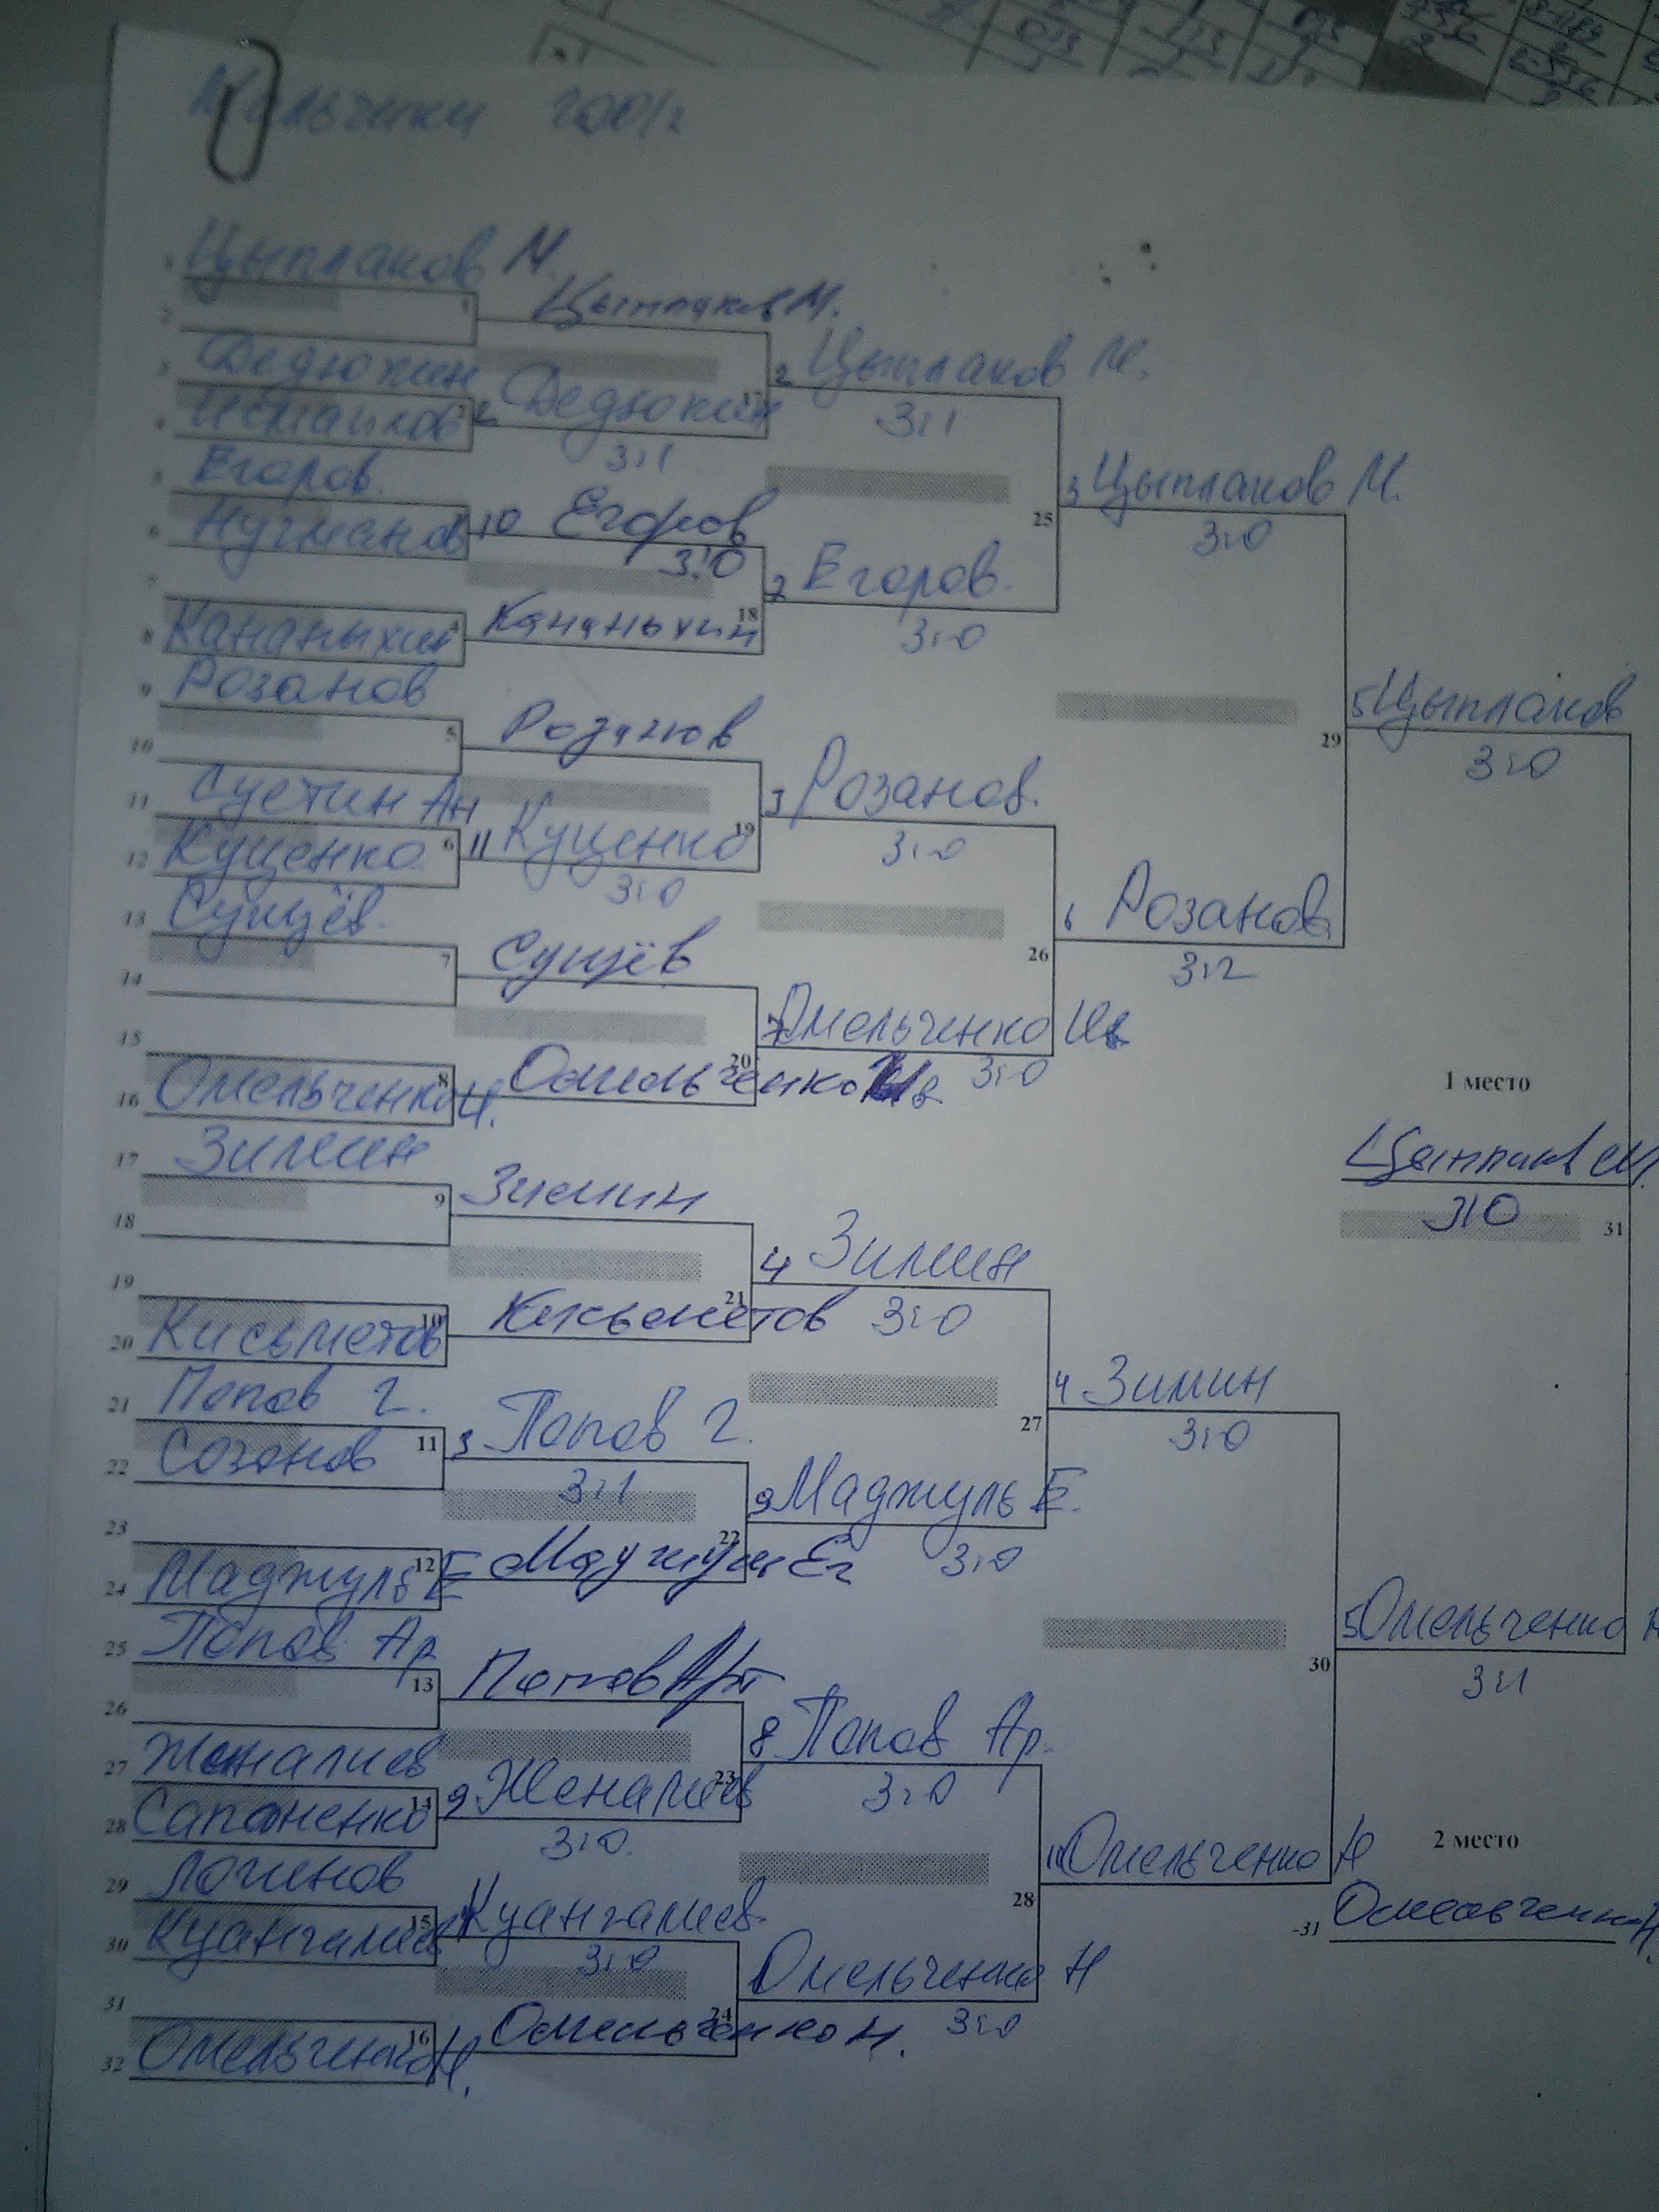 Мальчики 2001г
1 Цыплаков М.
2
1
Цыплаков М.
3 Дедюхин
4 Исмаилов
2
Дедюхин
3:1
17
2 Цыплаков М.
3:1
5 Егоров.
6 Нугманов
10 Егоров
3:0
7
8 Кананыхин
4
Кананыхин
18
2 Егоров.
3:0
25
3 Цыплаков М.
3:0
9 Розанов
10
5
Розанов
11 Сустин Ан
12 Куценко
6
11 Куценко
3:0
19
3 Розанов.
3:0
13 Сунцёв.
14
7
Сунцёв
15
16 Омельченко И.
8
Омельченко Ив
20
7 Омельченко Ив
3:0
26
6 Розанов
3:2
29
5 Цыплаков
3:0
17 Зимин
18
9
Зимин
19
20 Кисьметов
10
Кисьметов
21
4 Зимин
3:0
21 Попов Г.
22 Созонов
11
3 Попов Г.
3:1
23
24 Маджуль Е
12
Маджуль Ег
22
9 Маджуль Е.
3:0
27
4 Зимин
3:0
25 Попов Ар
26
13
Попов Арт
27 Женалиев
28 Сапоненко
14
9 Женалиев
3:0.
23
8 Попов Ар.
3:0
29 Логинов
30 Куангалиев
15
Куангалиев.
3:0
31
32 Омельченко Н.
16
Омельченко Н.
24
Омельченко Н
3:0
28
Омельченко Н
30
5 Омельченко
3:1
1 место
Цыплаков М.
3:0
31
2 место
-31 Омельченко Н.